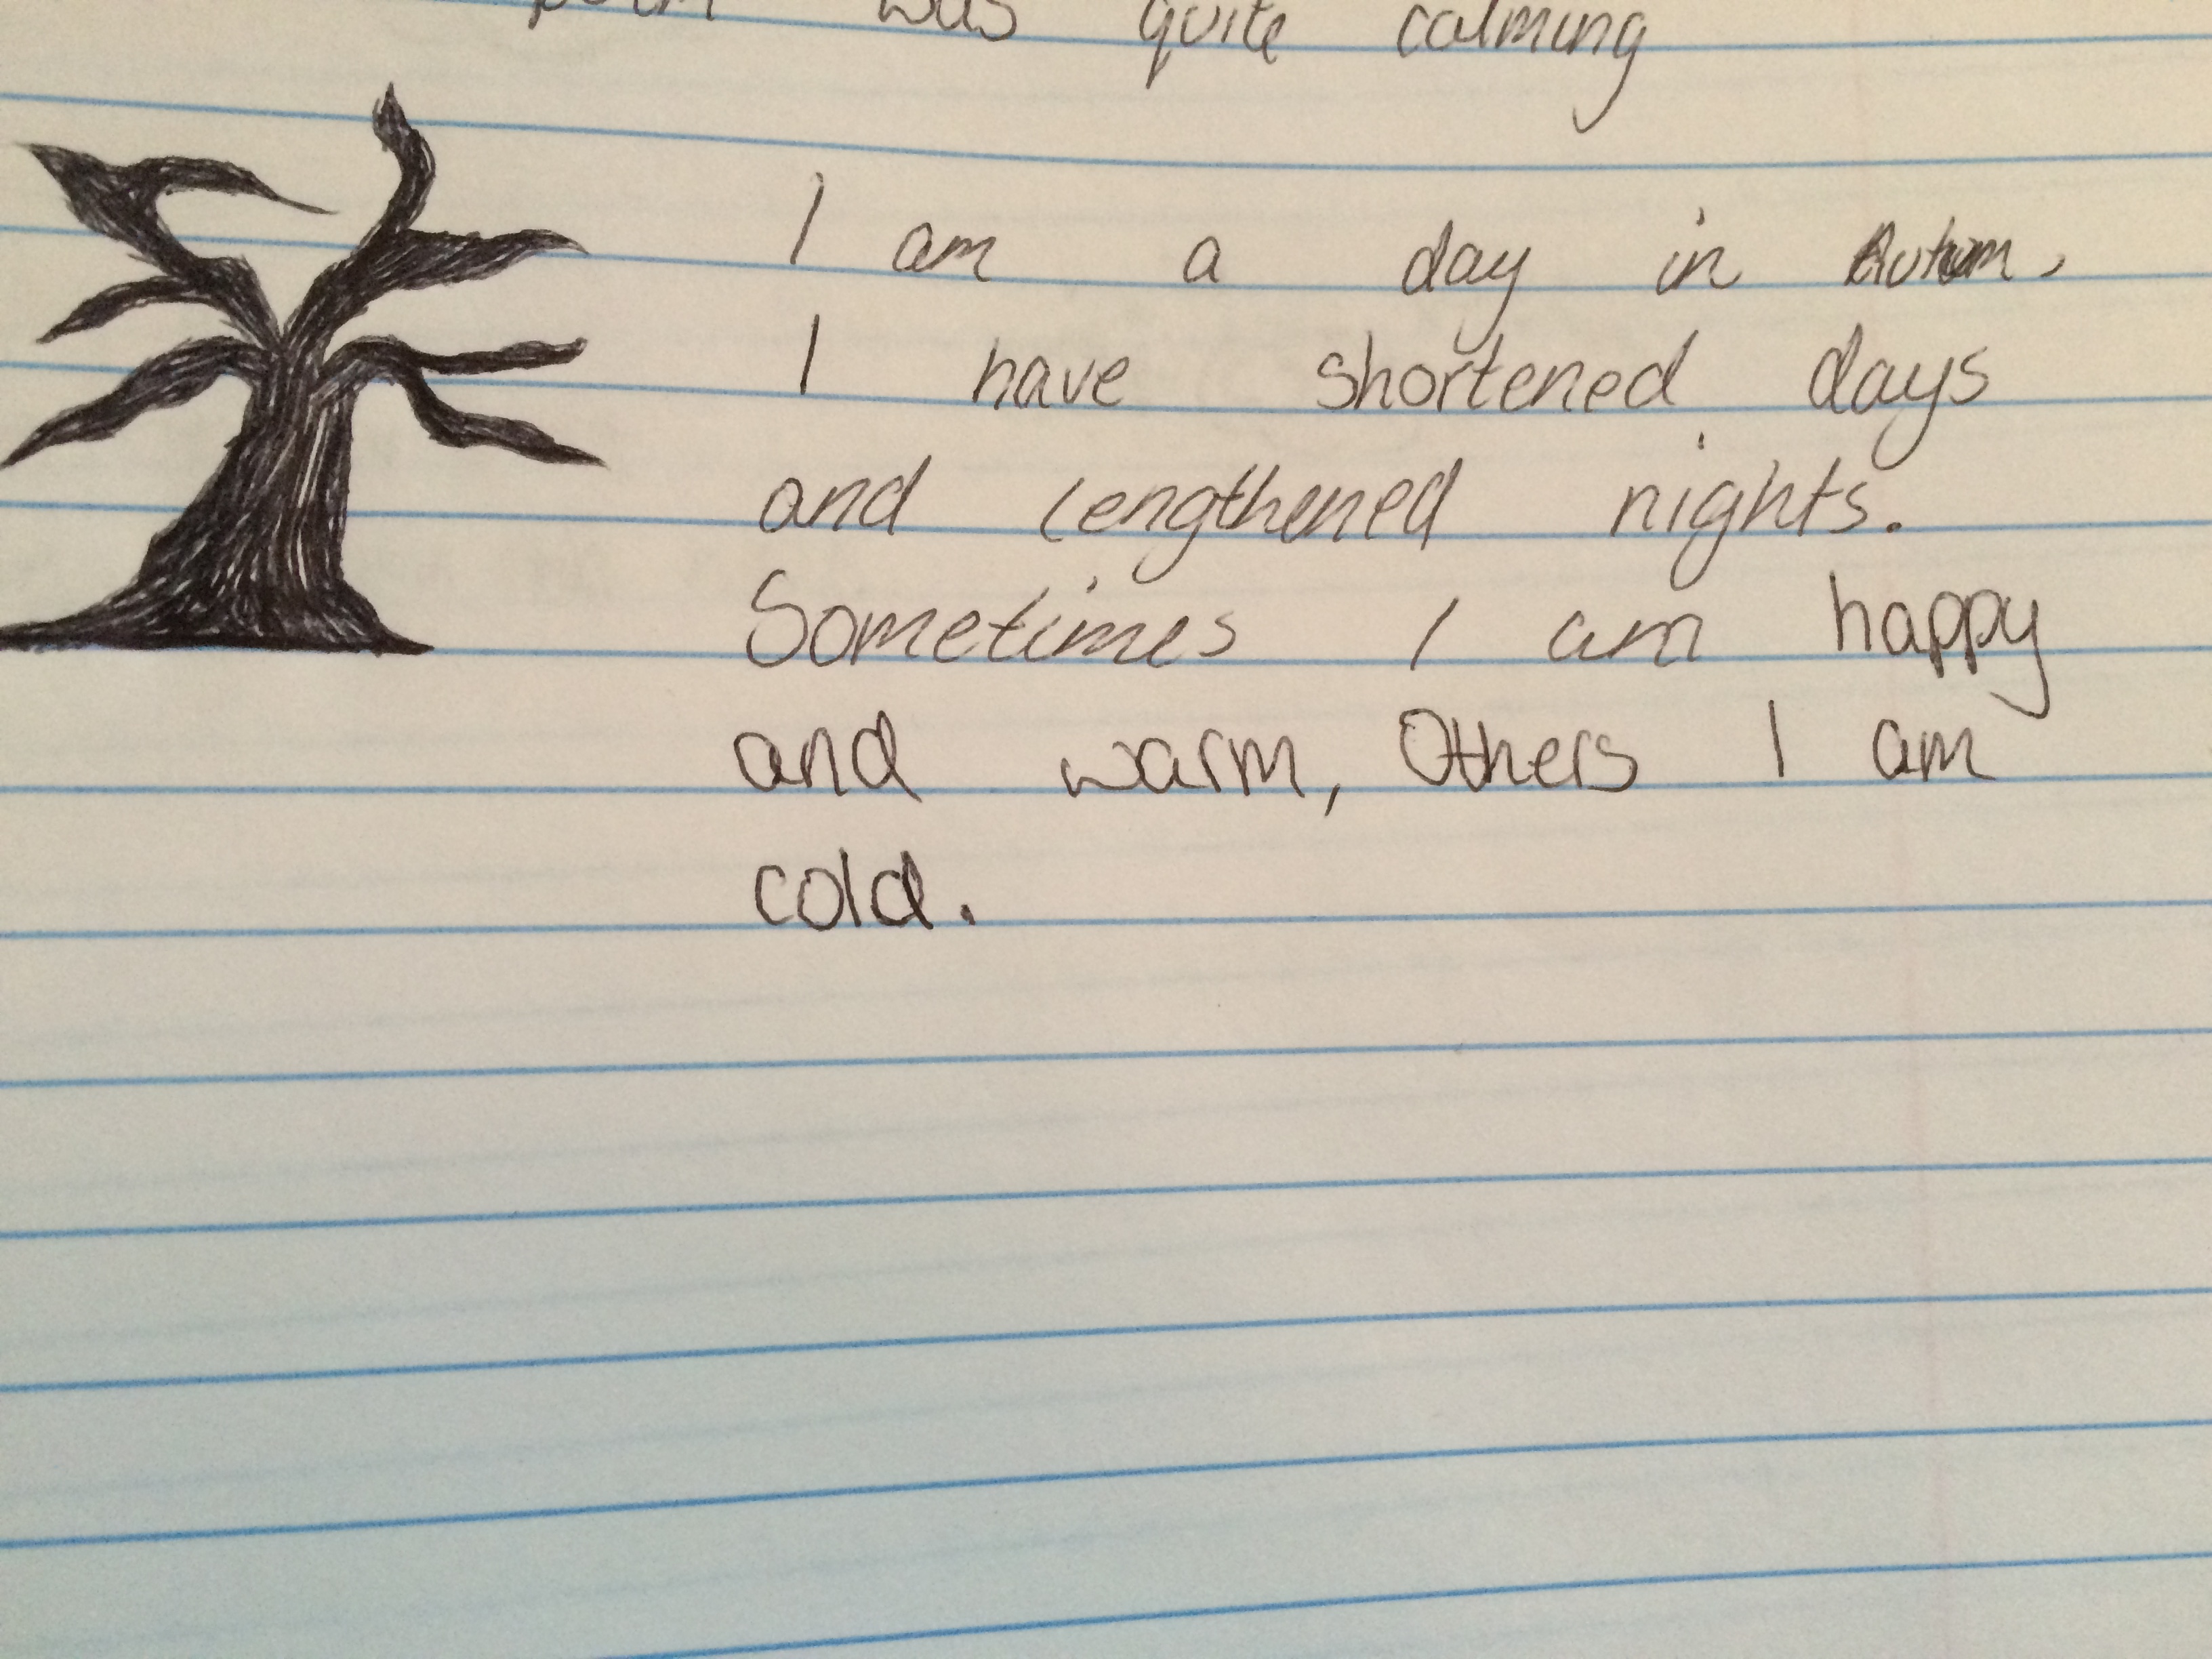 poem was quite calming
I am a day in Autum,
I have shortened days
and lengthened nights.
Sometimes I am happy
and warm, Others I am
cold.